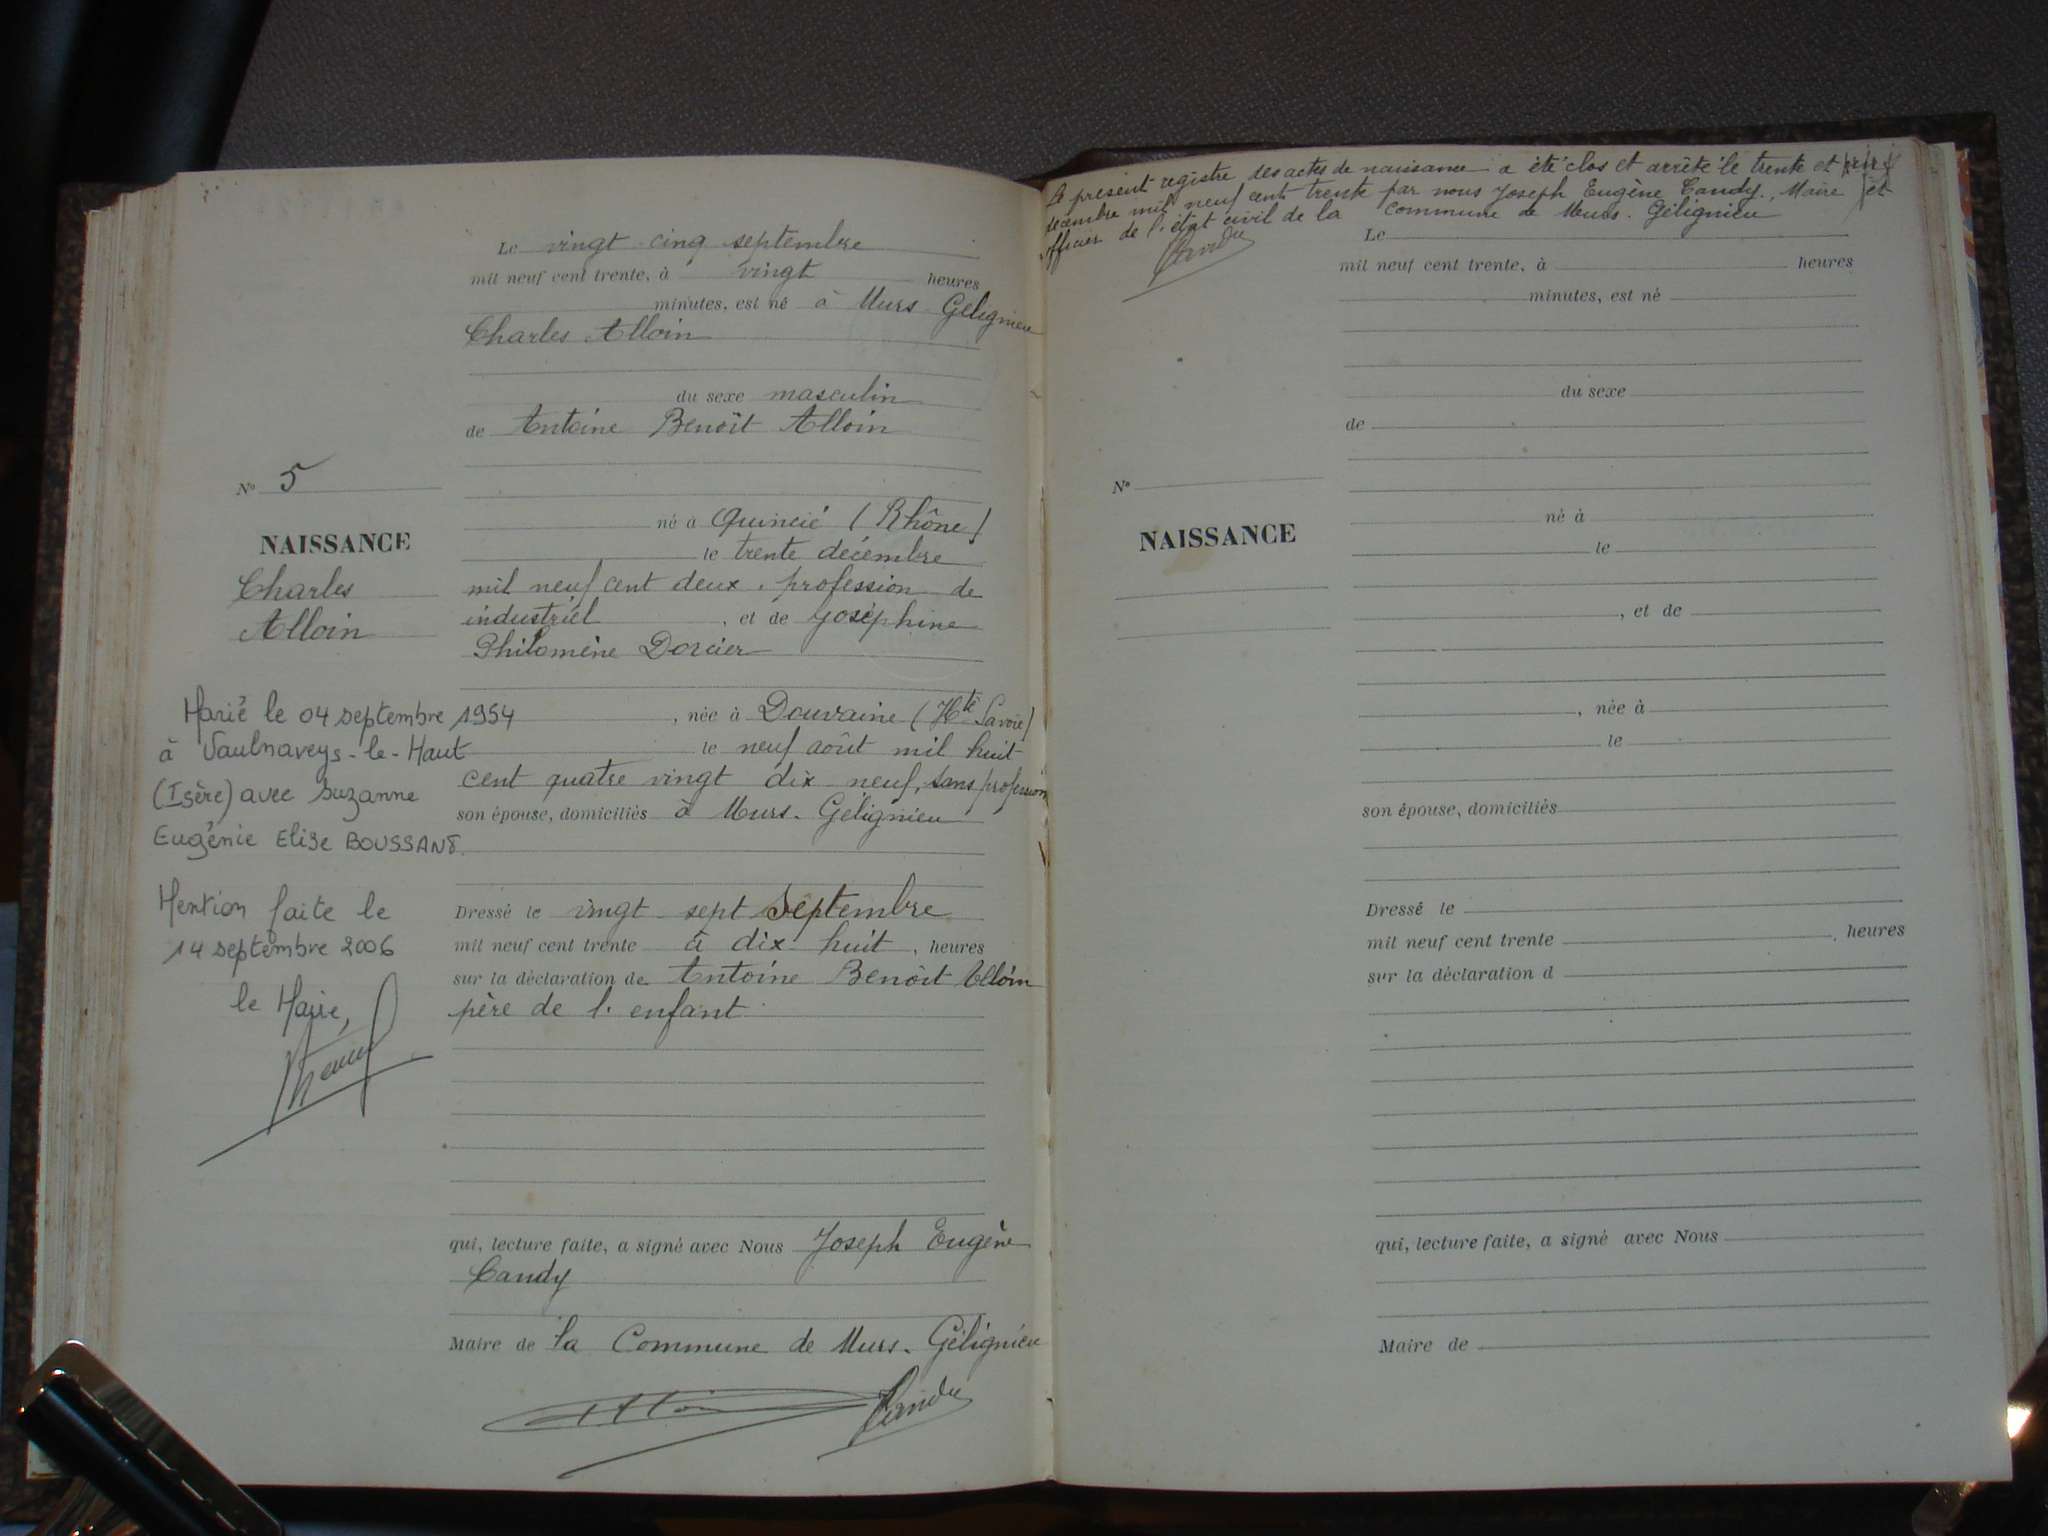 Le vingt cinq septembre
mil neuf cent trente, à vingt heures
minutes, est né à Murs Gélignieu
Charles Alloin
du sexe masculin
de Antoine Benoît Alloin
né à Quincié (Rhône)
le trente décembre
mil neuf cent deux, profession de
industriel, et de Joséphine
Philomène Dorcier
, née à Douvaine (Hte Savoie)
le neuf août mil huit
cent quatre vingt dix neuf, sans profession
son épouse, domiciliés à Murs-Gélignieu
Dressé le vingt sept septembre
mil neuf cent trente à dix huit, heures
sur la déclaration de Antoine Benoît Alloin
père de l'enfant
qui, lecture faite, a signé avec Nous Joseph Eugène
Candy
Maire de la Commune de Murs-Gélignieu
Alloin Candy
No 5
NAISSANCE
Charles
Alloin
Marié le 04 septembre 1954
à Vaulnaveys-le-Haut
(Isère) avec Suzanne
Eugénie Elise BOUSSAND.
Mention faite le
14 septembre 2006
le Maire,
Le présent registre des actes de naissance a été clos et arrêté le trente et
décembre mil neuf cent trente par nous Joseph Eugène Candy, Maire et
officier de l'état civil de la Commune de Murs-Gélignieu
Candy
Le
mil neuf cent trente, à heures
minutes, est né
du sexe
de
No
NAISSANCE
né à
le
, et de
, née à
le
son épouse, domiciliés
Dressé le
mil neuf cent trente , heures
sur la déclaration d
qui, lecture faite, a signé avec Nous
Maire de